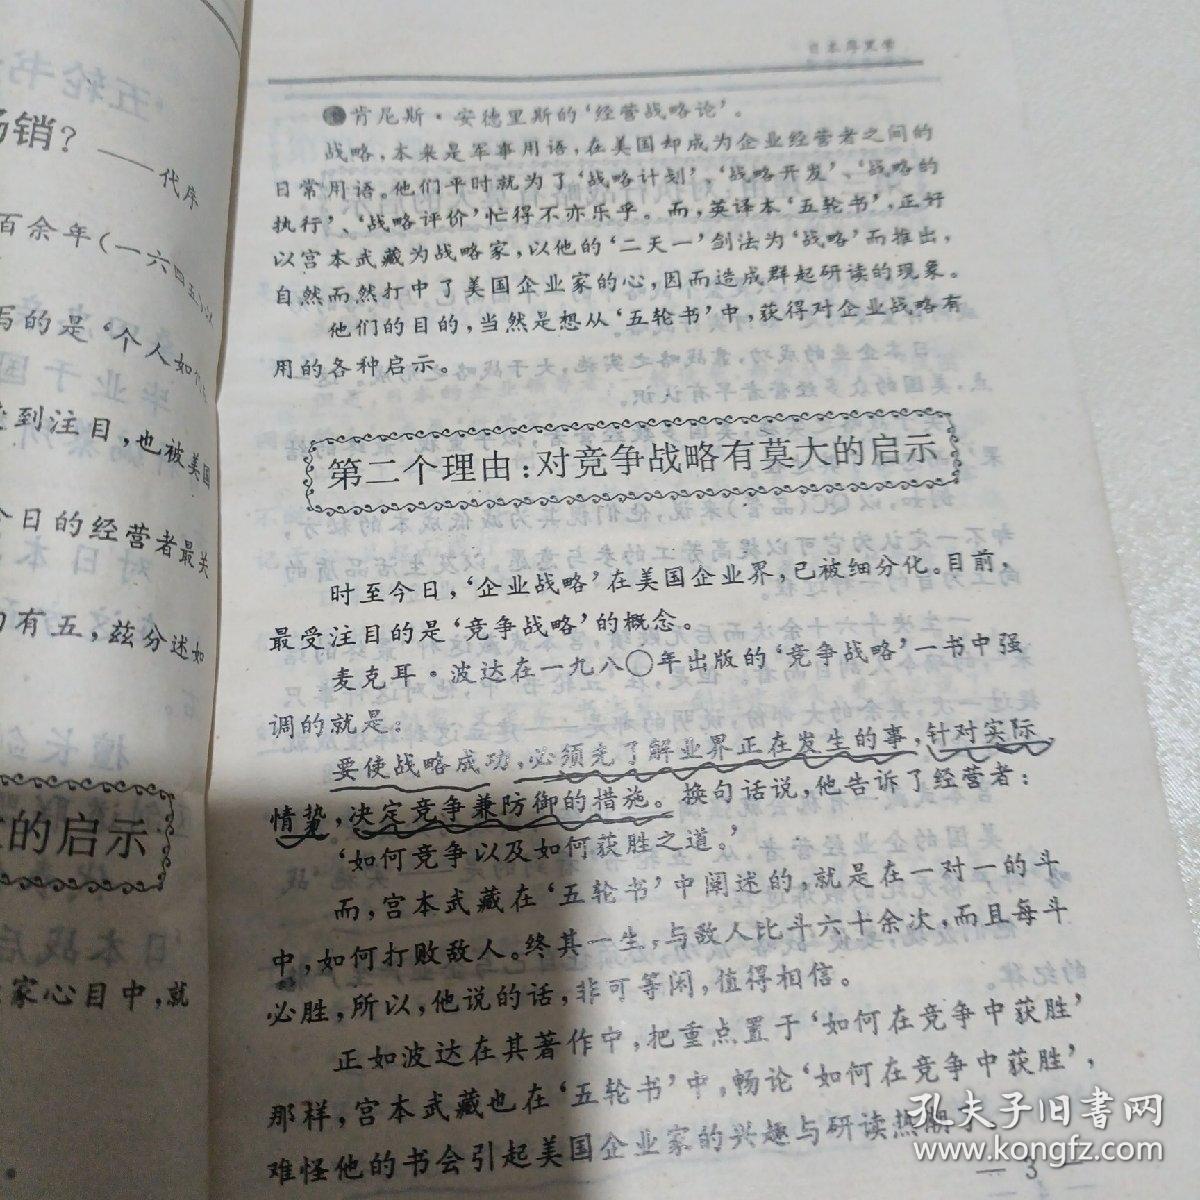 畅销?
——代序
百余年(一六四五)以
写的是‘个人如何在
受到注目,也被美国
今日的经营者最关
有五,兹分述如
的启示
家心目中,就
日本厚黑学
肯尼斯·安德里斯的‘经营战略论’。
战略,本来是军事用语,在美国却成为企业经营者之间的
日常用语。他们平时就为了‘战略计划’、‘战略开发’、‘战略的
执行’、‘战略评价’忙得不亦乐乎。而,英译本‘五轮书’,正好
以宫本武藏为战略家,以他的‘二天一’剑法为‘战略’而推出,
自然而然打中了美国企业家的心,因而造成群起研读的现象。
他们的目的,当然是想从‘五轮书’中,获得对企业战略有
用的各种启示。
第二个理由:对竞争战略有莫大的启示
时至今日,‘企业战略’在美国企业界,已被细分化。目前,
最受注目的是‘竞争战略’的概念。
麦克耳·波达在一九八〇年出版的‘竞争战略’一书中强
调的就是:
要使战略成功,必须先了解业界正在发生的事,针对实际
情势,决定竞争兼防御的措施。换句话说,他告诉了经营者:
‘如何竞争以及如何获胜之道。’
而,宫本武藏在‘五轮书’中阐述的,就是在一对一的斗
中,如何打败敌人。终其一生,与敌人比斗六十余次,而且每斗
必胜,所以,他说的话,非可等闲,值得相信。
正如波达在其著作中,把重点置于‘如何在竞争中获胜’
那样,宫本武藏也在‘五轮书’中,畅论‘如何在竞争中获胜’,
难怪他的书会引起美国企业家的兴趣与研读热潮了
— 3 —
孔夫子旧书网
www.kongfz.com